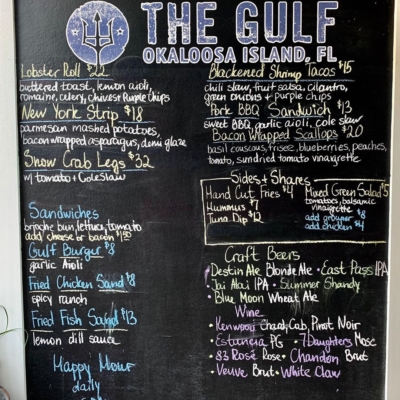 THE GULF
OKALOOSA ISLAND, FL
Lobster Roll $22
buttered toast, lemon aioli,
romaine, celery, chives + Purple Chips
New York Strip $18
parmesan mashed potatoes,
bacon wrapped asparagus, demi glaze
Snow Crab Legs $32
w/ tomato + Cole Slaw
Sandwiches
brioche bun, lettuce, tomato
add cheese or bacon
Gulf Burger $8
garlic Aioli
Fried Chicken Sand $8
spicy ranch
Fried Fish Sand $13
lemon dill sauce
Happy Hour
daily
Blackened Shrimp Tacos $15
chili slaw, fruit salsa, cilantro,
green onions + purple chips
Pork BBQ Sandwich $13
sweet BBQ, garlic aioli, cole slaw
Bacon Wrapped Scallops $20
basil couscous, frisee, blueberries, peaches,
tomato, sundried tomato vinaigrette
Sides + Shares
Hand Cut Fries $4
Hummus $7
Tuna Dip $12
Mixed Green Salad $5
tomatoes, balsamic
vinaigrette
add grouper $8
add chicken $4
Craft Beers
• Destin Ale Blonde Ale • East Pass IPA
• Jai Alai IPA • Summer Shandy
• Blue Moon Wheat Ale
Wine
• Kenwood Chardy, Cab, Pinot Noir
• Estancia PG • 7 Daughters Mosc
• 83 Rosé Rose • Chandon Brut
• Veuve Brut • White Claw